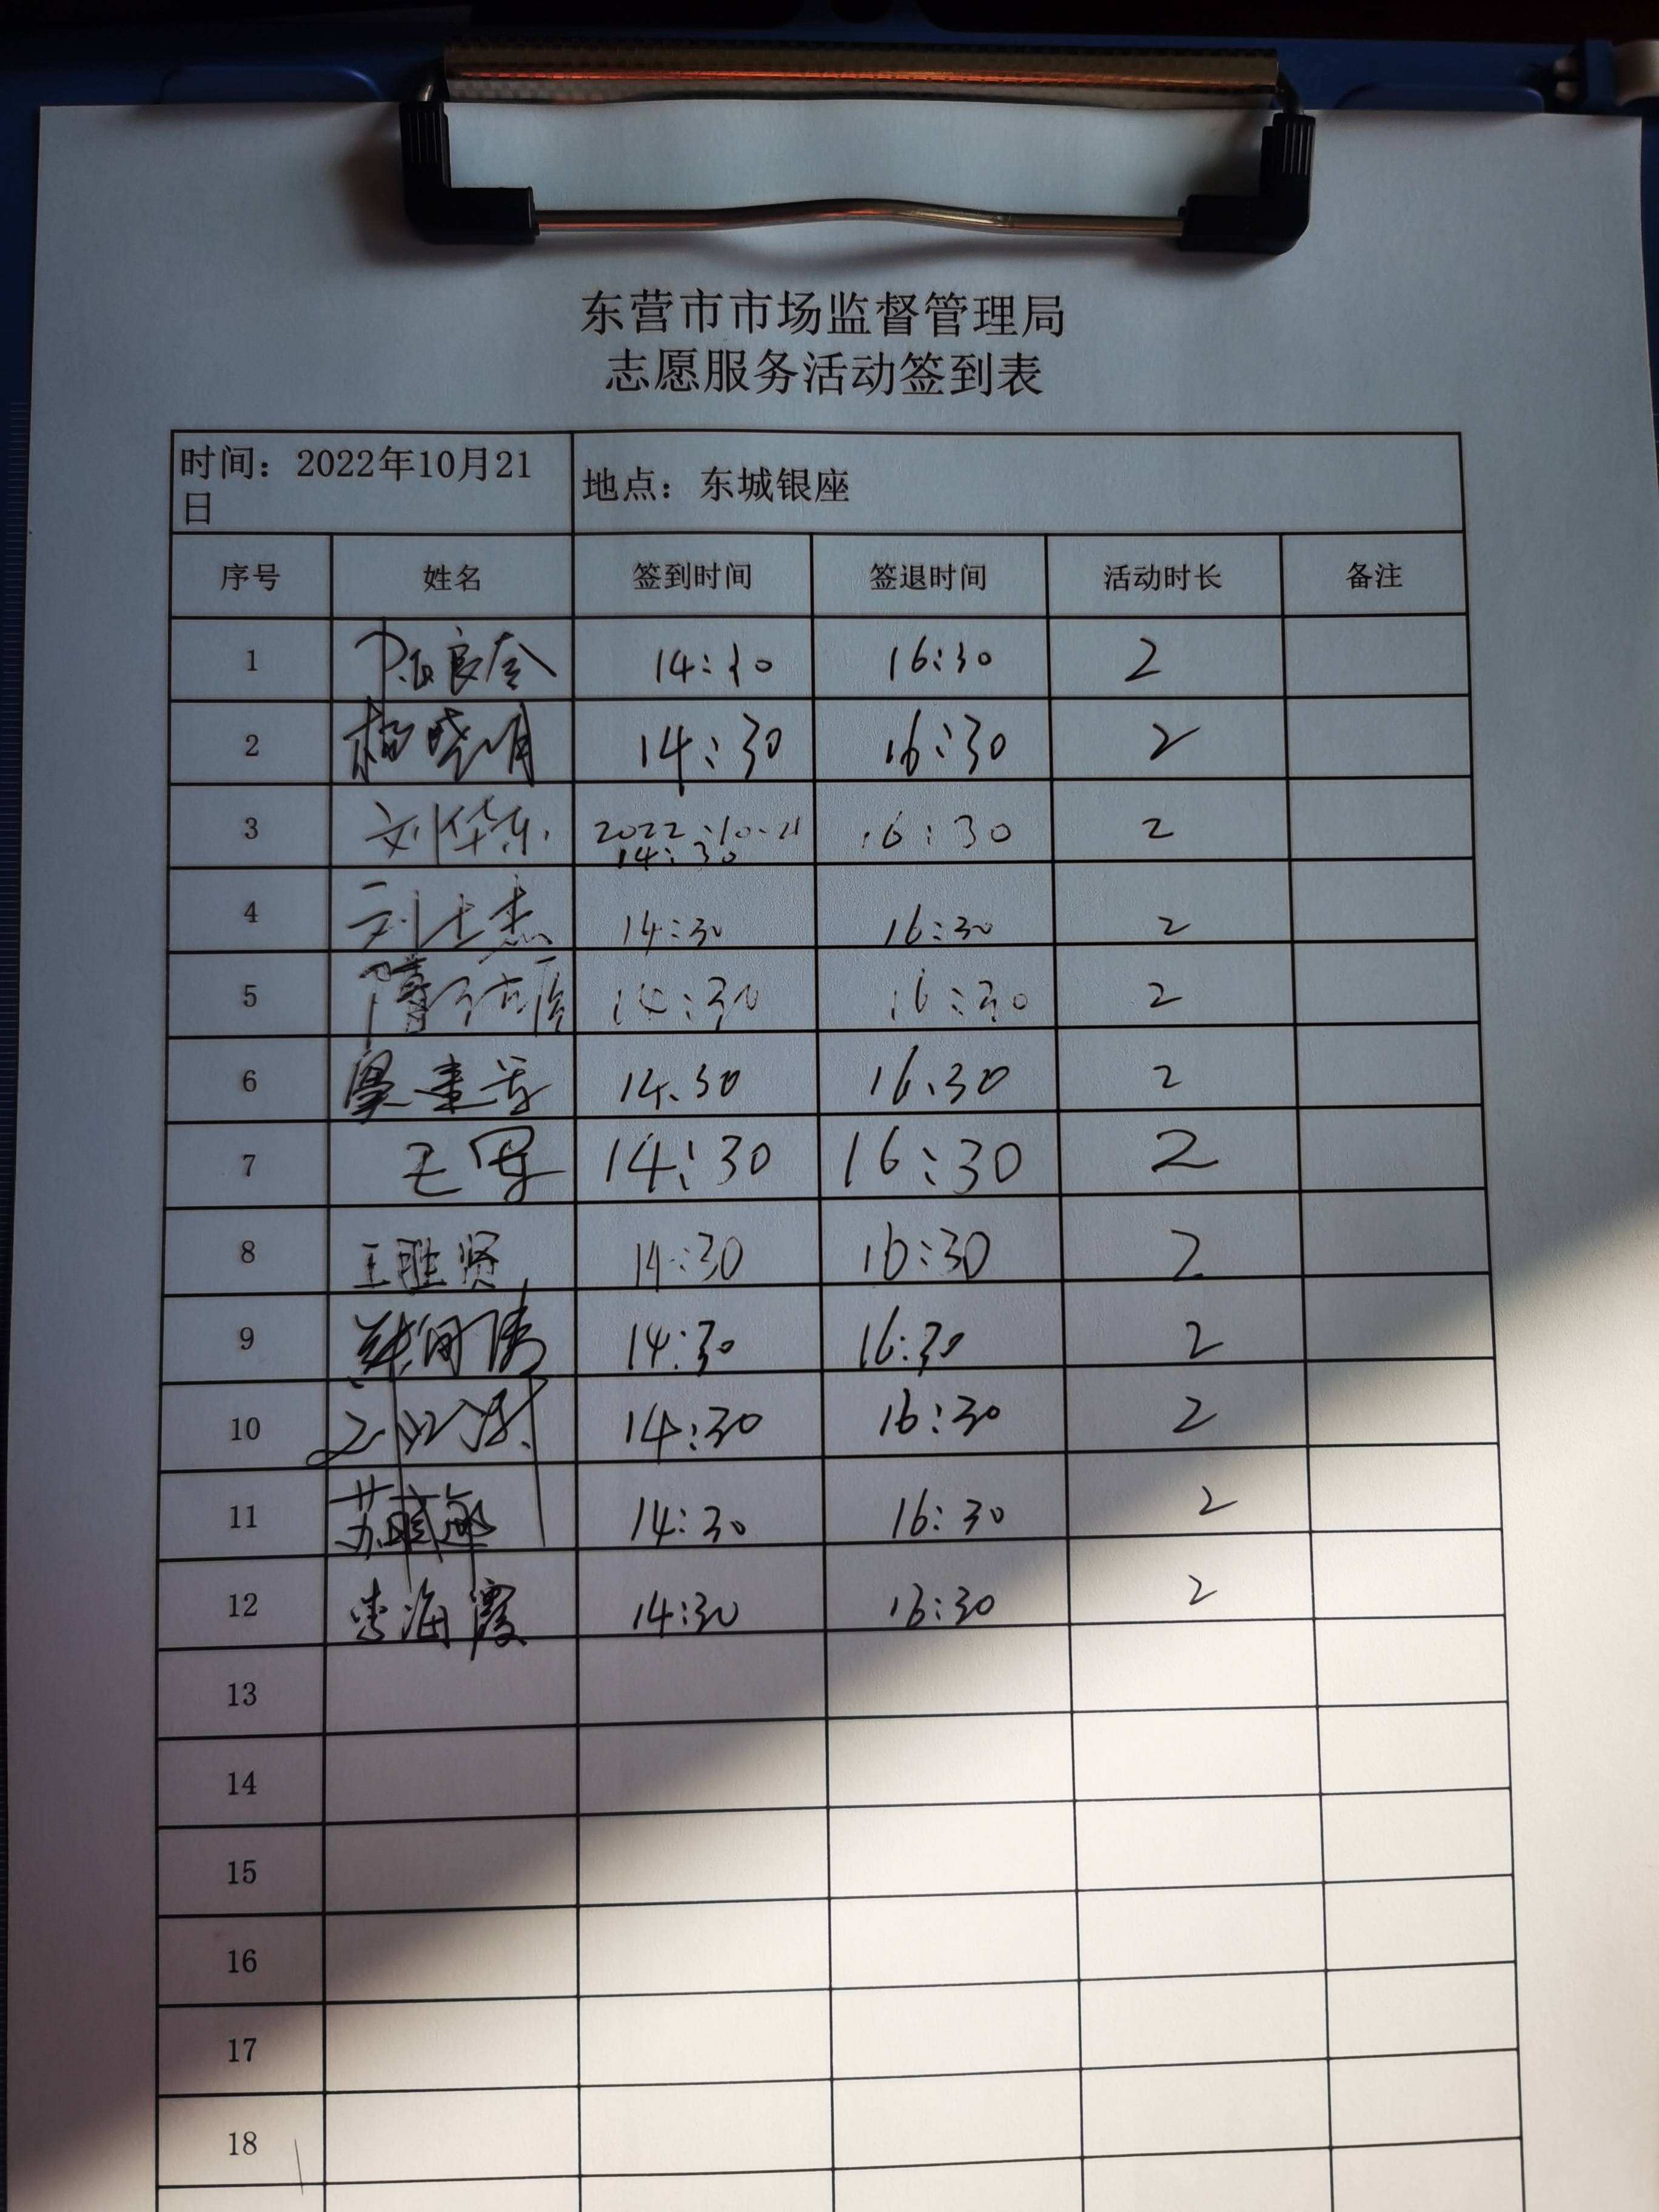 东营市市场监督管理局
志愿服务活动签到表
时间：2022年10月21日 地点：东城银座
序号 姓名 签到时间 签退时间 活动时长 备注
1 14:30 16:30 2
2 杨晓明 14:30 16:30 2
3 刘华东 2022.10.21 14:30 16:30 2
4 刘士杰 14:30 16:30 2
5 14:30 16:30 2
6 14.30 16.30 2
7 14:30 16:30 2
8 王胜贤 14:30 16:30 2
9 14:30 16:30 2
10 14:30 16:30 2
11 苏 14:30 16:30 2
12 李海霞 14:30 16:30 2
13
14
15
16
17
18